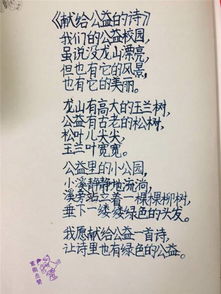 《献给公益的诗》
我们的公益校园，
虽说没龙山漂亮，
但也有它的风景，
也有它的美丽。
龙山有高大的玉兰树，
公益有古老的松树，
松叶儿尖尖，
玉兰叶宽宽。
公益里的小公园，
小溪静静地流淌，
溪旁站立着一棵棵柳树，
垂下一缕缕绿色的头发。
我愿献给公益一首诗，
让诗里也有绿色的公益。